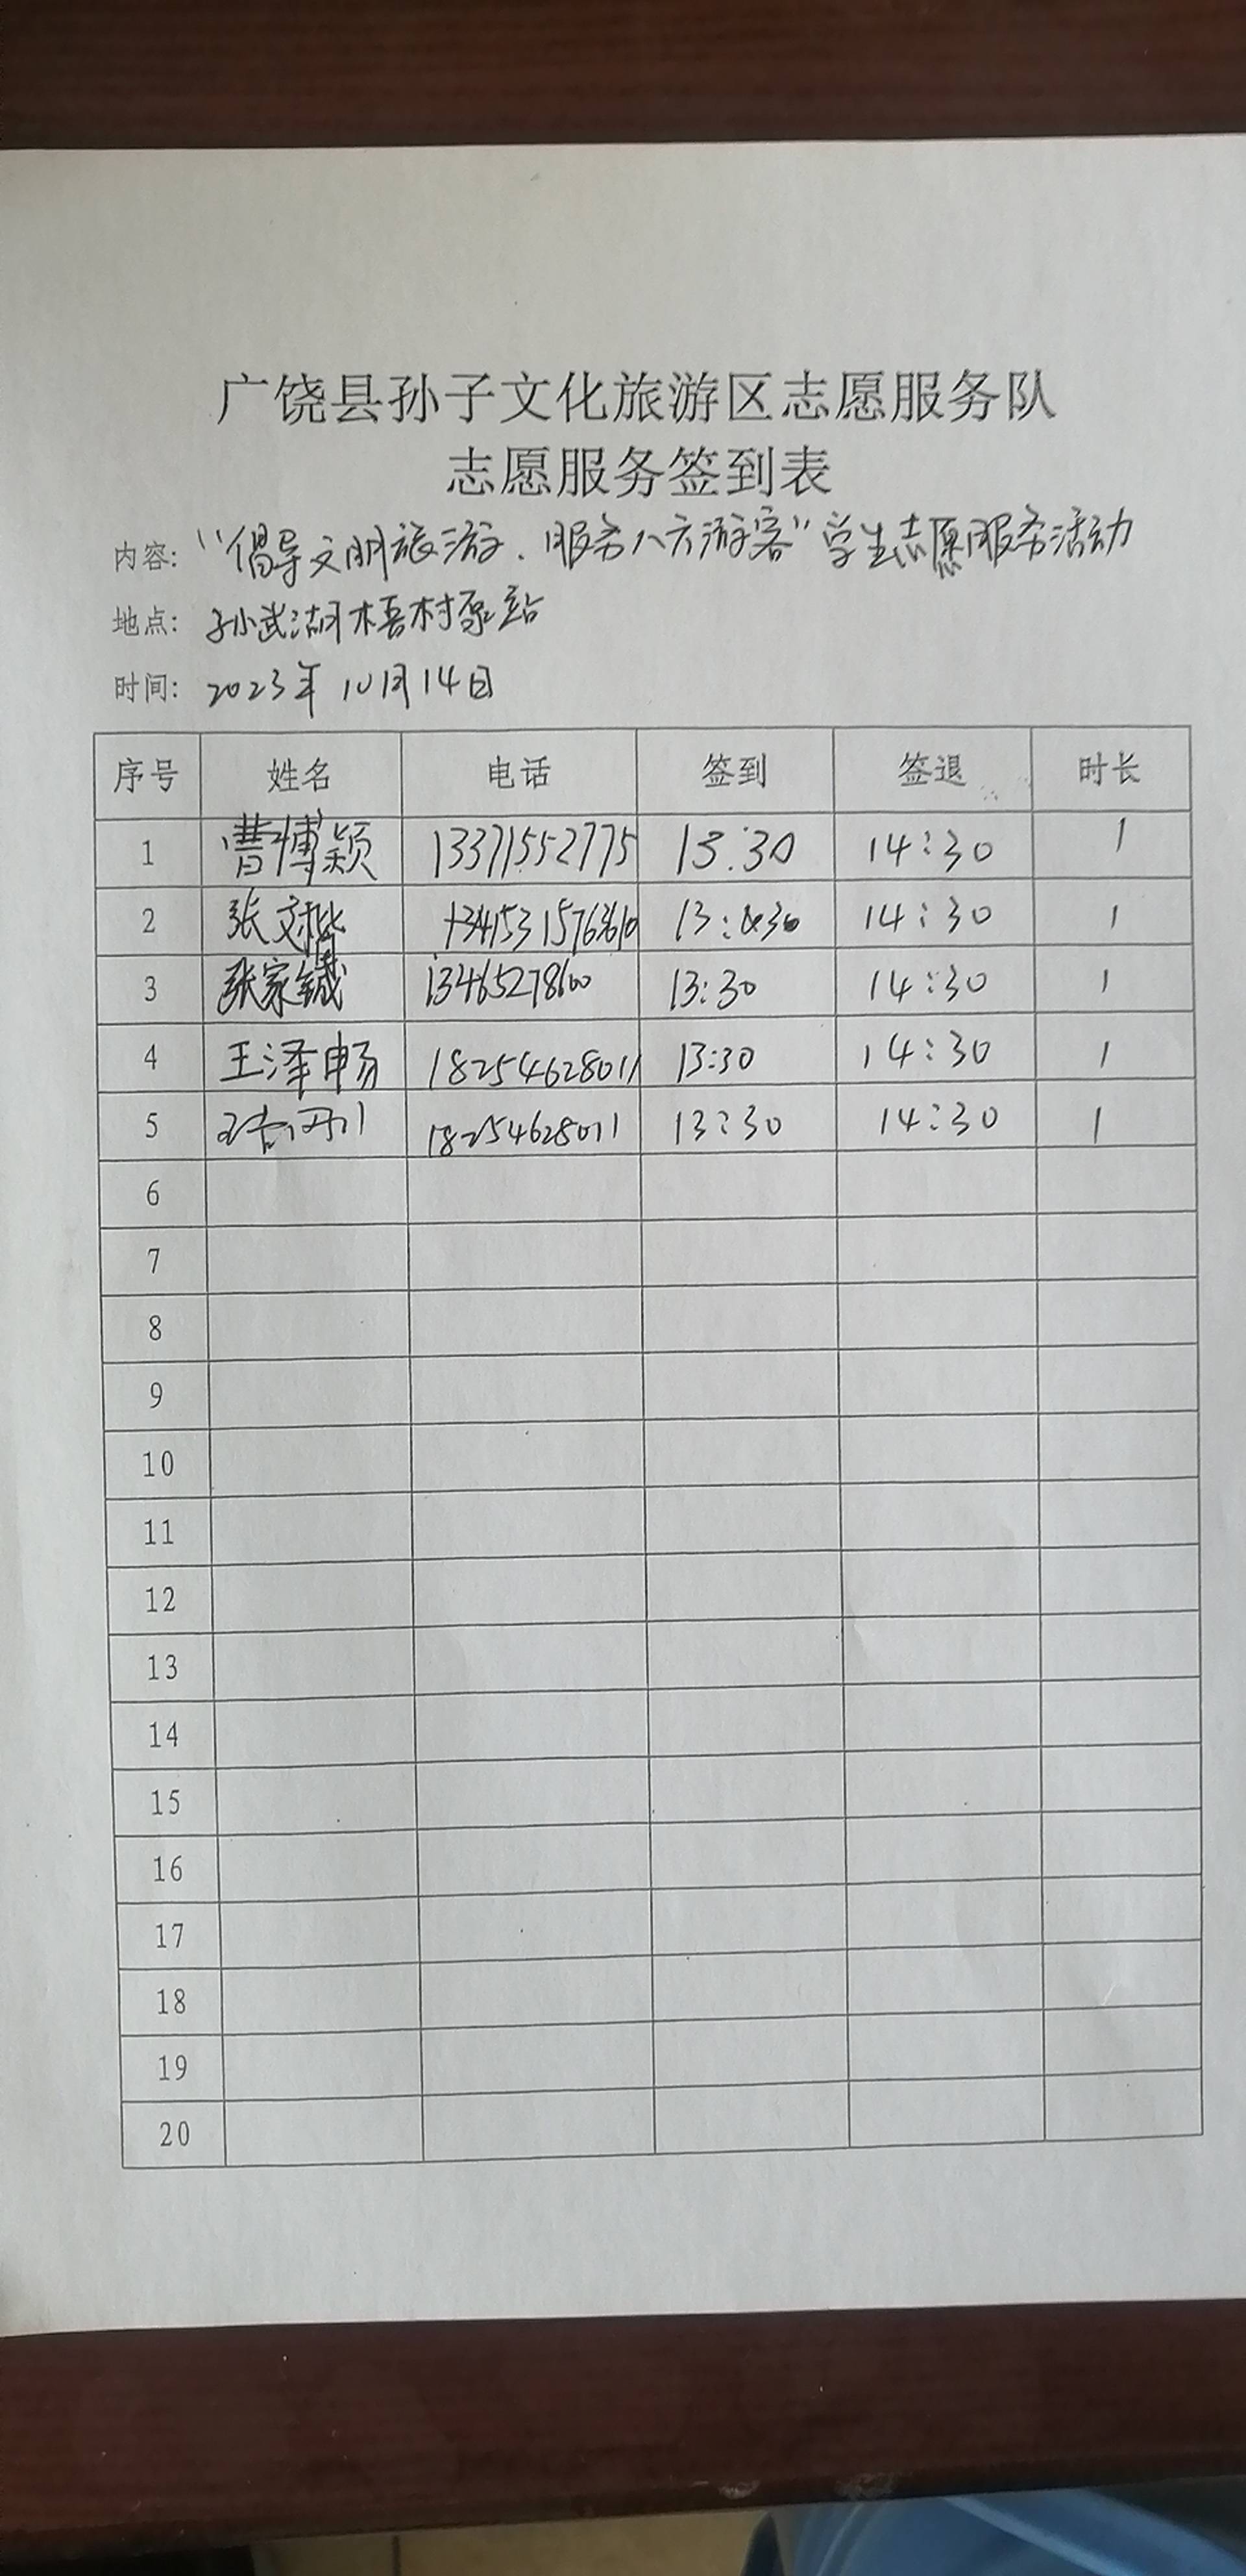 广饶县孙子文化旅游区志愿服务队
志愿服务签到表
内容: "倡导文明旅游.服务八方游客"学生志愿服务活动
地点: 孙武湖梧村泵站
时间: 2023年10月14日
序号 姓名 电话 签到 签退 时长
1 曹博颖 13371552775 13:30 14:30 1
2 张文彬 13:30 14:30 1
3 张家铖 13465278600 13:30 14:30 1
4 王泽畅 18254628011 13:30 14:30 1
5 18254628011 13:30 14:30 1
6
7
8
9
10
11
12
13
14
15
16
17
18
19
20